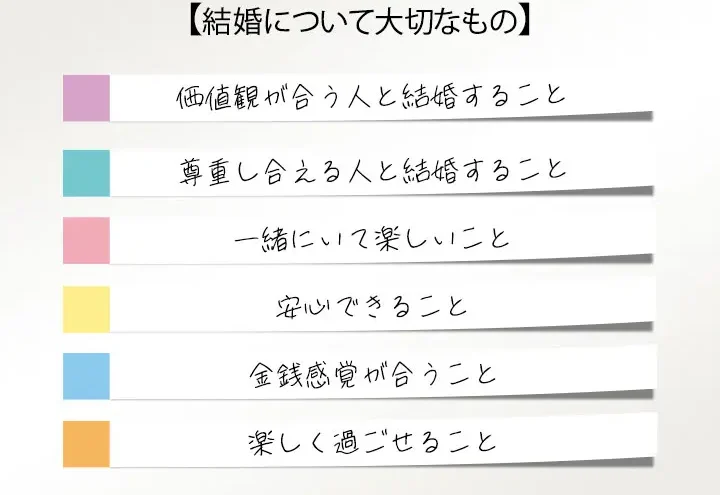 【結婚について大切なもの】
価値観が合う人と結婚すること
尊重し合える人と結婚すること
一緒にいて楽しいこと
安心できること
金銭感覚が合うこと
楽しく過ごせること